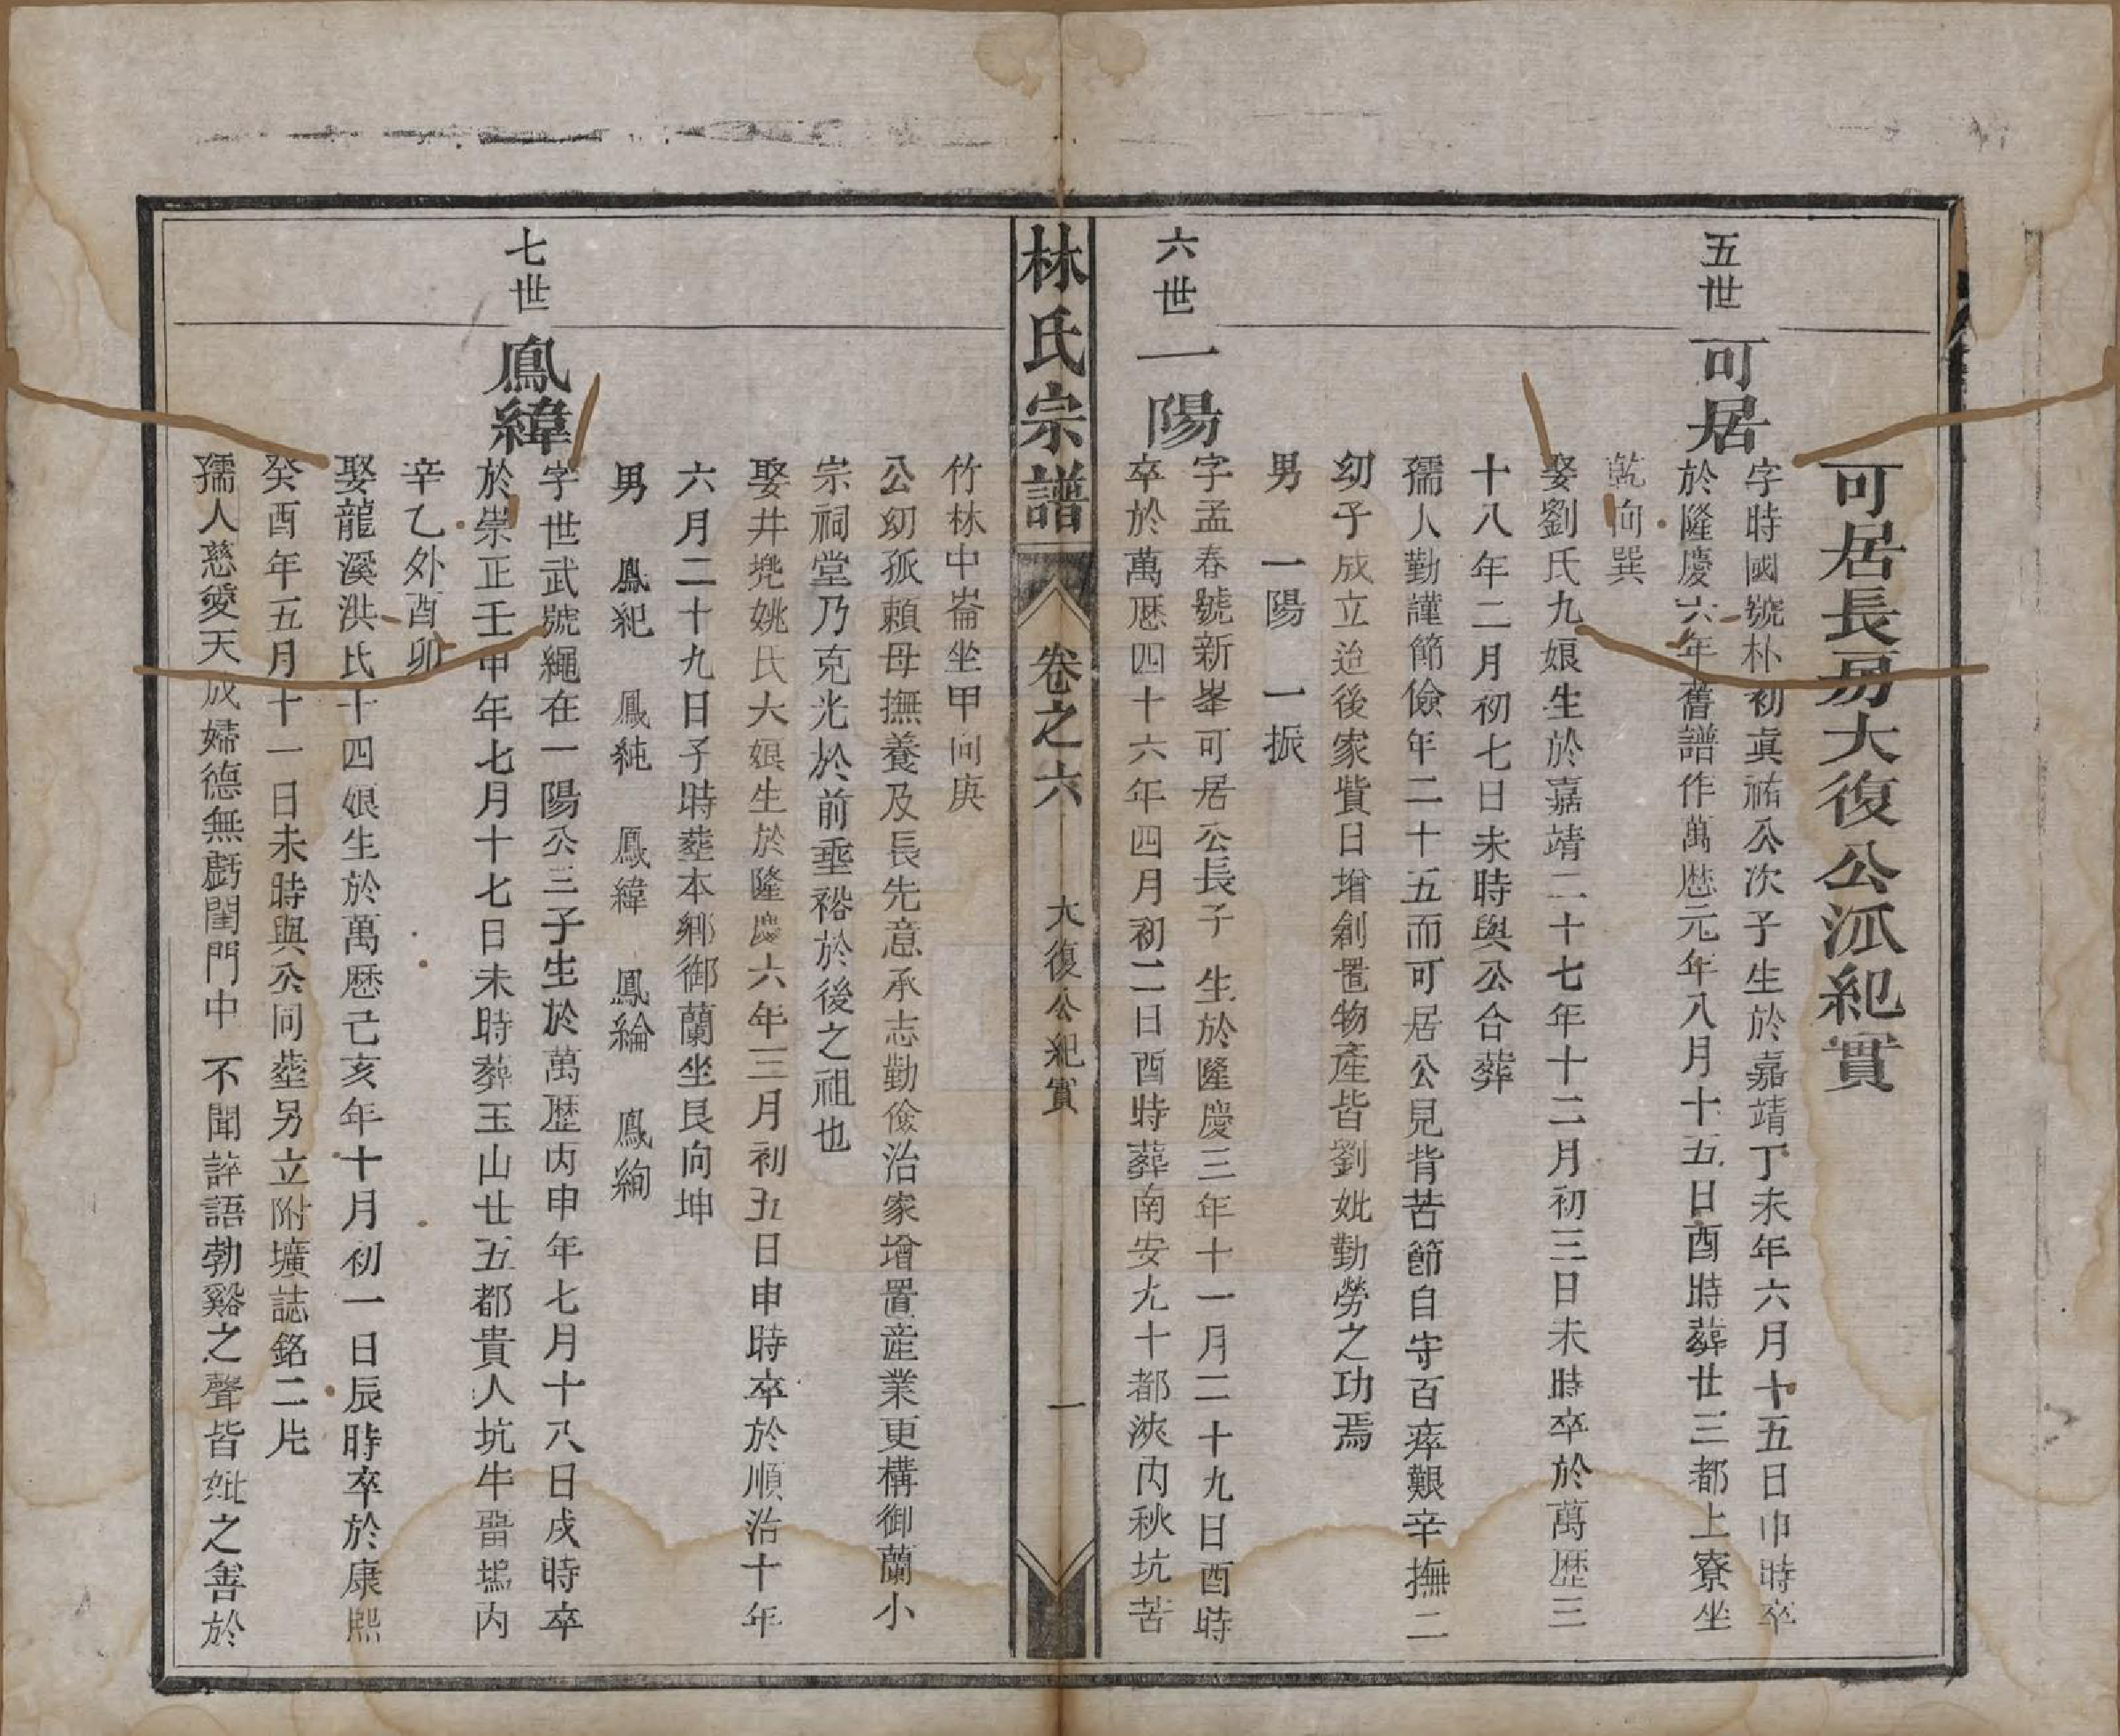 可居長房大復公派紀實
五世
可居
字時國號朴初眞祐公次子生於嘉靖丁未年六月十五日巾時卒
於隆慶六年舊譜作萬歷元年八月十五日酉時葬廿三都上寮坐
乾向巽
娶劉氏九娘生於嘉靖二十七年十二月初三日未時卒於萬歷三
十八年二月初七日未時與公合葬
孺人勤謹節儉年二十五而可居公見背苦節自守百瘁艱辛撫二
幼子成立迨後家貲日增創置物產皆劉妣勤勞之功焉
男 一陽 一振
六世
一陽
字孟春號新峯可居公長子 生於隆慶三年十一月二十九日酉時
卒於萬歷四十六年四月初二日酉時葬南安九十都浹內秋坑苦
林氏宗譜 卷之六 大復公紀實 一
竹林中崙坐甲向庚
公幼孤賴母撫養及長先意承志勤儉治家增置産業更構御蘭小
宗祠堂乃克光於前垂裕於後之祖也
娶井兠姚氏大娘生於隆慶六年三月初五日申時卒於順治十年
六月二十九日子時葬本鄉御蘭坐艮向坤
男 鳳紀 鳳純 鳳緯 鳳綸 鳳絢
七世
鳳緯
字世武號繩在一陽公三子生於萬歷丙申年七月十八日戌時卒
於崇正壬申年七月十七日未時葬玉山廿五都貴人坑牛畱塢内
辛乙外酉卯
娶龍溪洪氏十四娘生於萬歷己亥年十月初一日辰時卒於康熙
癸酉年五月十一日未時與公同葬另立附壙誌銘二片
孺人慈愛天成婦德無虧閨門中 不聞誶語勃谿之聲皆妣之善於